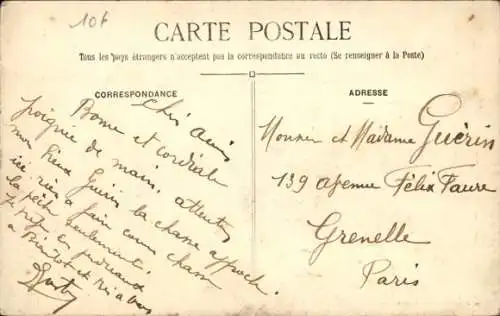 10f
CARTE POSTALE
Tous les pays étrangers n'acceptent pas la correspondance au recto (Se renseigner à la Poste)
CORRESPONDANCE
Chers Amis
Bonne et cordiale
poignée de main, attention
mon vieux Guérin la chasse approche
ici rien à faire comme chasse
la pêche seulement.
Je suis en
a Bientôt et
ADRESSE
Monsieur et Madame Guérin
139 avenue Félix Faure
Grenelle
Paris